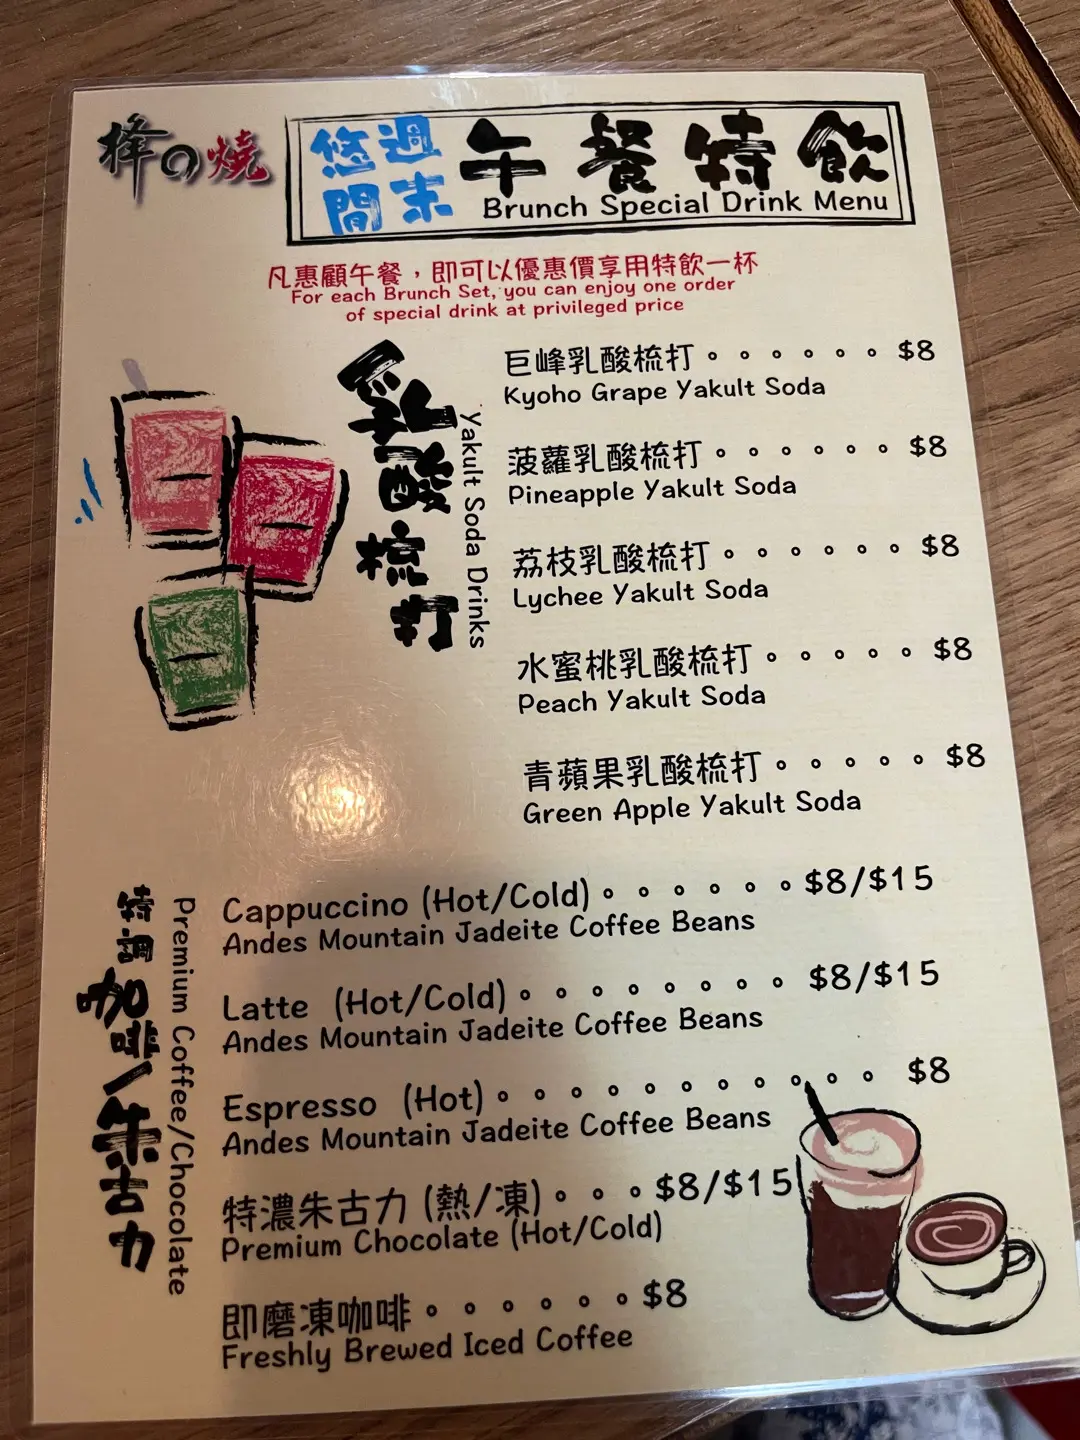 烽の燒
悠閒週末 午餐特飲
Brunch Special Drink Menu
凡惠顧午餐，即可以優惠價享用特飲一杯
For each Brunch Set, you can enjoy one order
of special drink at privileged price
乳酸梳打
Yakult Soda Drinks
巨峰乳酸梳打。。。。。。 $8
Kyoho Grape Yakult Soda
菠蘿乳酸梳打。。。。。。 $8
Pineapple Yakult Soda
荔枝乳酸梳打。。。。。。 $8
Lychee Yakult Soda
水蜜桃乳酸梳打。。。。。 $8
Peach Yakult Soda
青蘋果乳酸梳打。。。。。 $8
Green Apple Yakult Soda
特調咖啡/朱古力
Premium Coffee/Chocolate
Cappuccino (Hot/Cold)。。。。。。$8/$15
Andes Mountain Jadeite Coffee Beans
Latte (Hot/Cold)。。。。。。。。 $8/$15
Andes Mountain Jadeite Coffee Beans
Espresso (Hot)。。。。。。。。。。。 $8
Andes Mountain Jadeite Coffee Beans
特濃朱古力 (熱/凍)。。。$8/$15
Premium Chocolate (Hot/Cold)
即磨凍咖啡。。。。。。$8
Freshly Brewed Iced Coffee